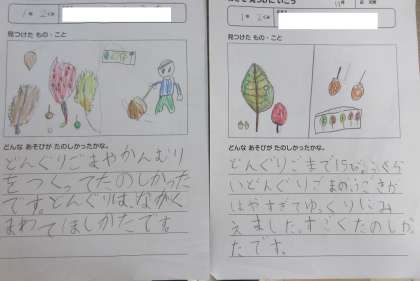 1年 2くみ
見つけた もの・こと
どんな あそびが たのしかったかな。
どんぐりごまやかんむり
をつくってたのしかった
です。どんぐりは、ながく
まわてほしかたです
1年 2くみ
見つけた もの・こと
どんな あそびが たのしかったかな。
どんぐりごまで
いどんぐりごまのうごきが
はやすぎてゆっくりにみ
えました。すごくたのしか
たです。